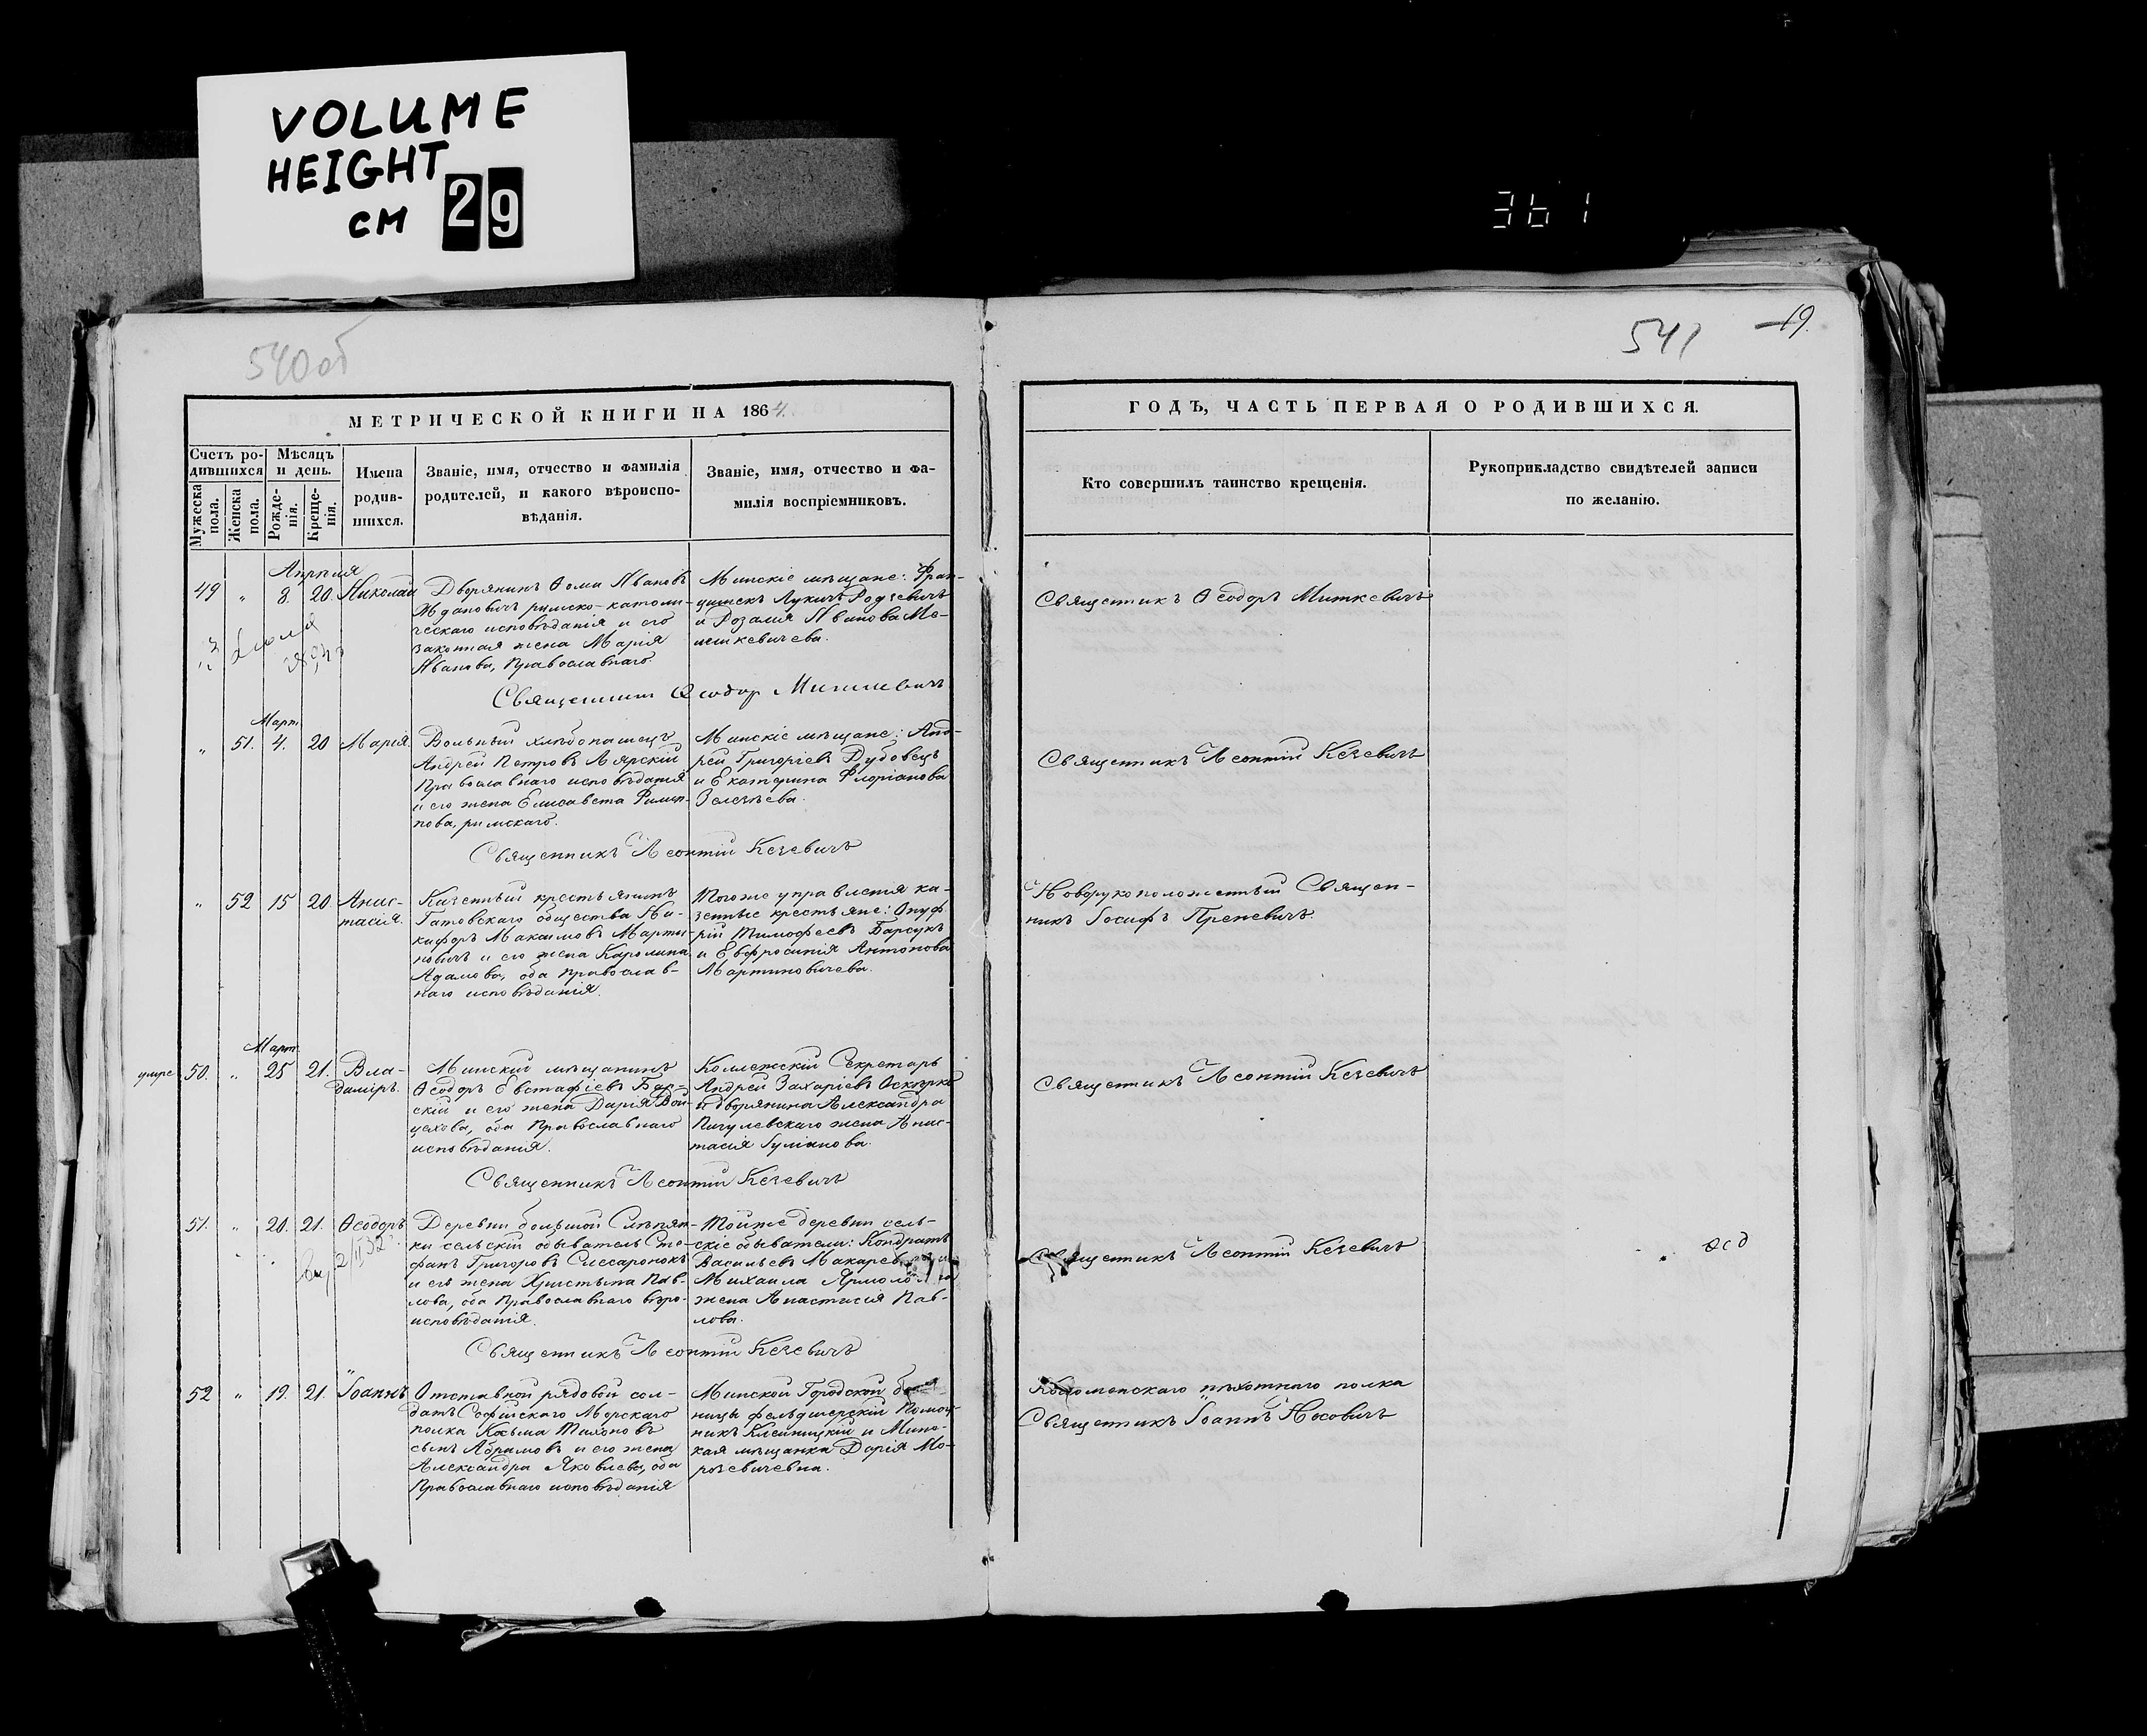 VOLUME
HEIGHT
CM 29
361
540об
541
19.
МЕТРИЧЕСКОЙ КНИГИ НА 1864.
ГОДЪ, ЧАСТЬ ПЕРВАЯ О РОДИВШИХСЯ.
Счетъ ро-
дившихся
Мѣсяцъ
и день.
Мужеска
пола.
Женска
пола.
Рожде-
нія.
Креще-
нія.
Имена
родив-
шихся.
Званіе, имя, отчество и фамилія
родителей, и какого вѣроиспо-
вѣданія.
Званіе, имя, отчество и фа-
милія воспріемниковъ.
Кто совершилъ таинство крещенія.
Рукоприкладство свидѣтелей записи
по желанію.
Апрѣля
49 " 8. 20. Николай
Дворянинъ Ѳома Ивановъ
Ждановичъ римско-католи-
ческаго исповѣданія и его
законная жена Марія
Иванова, Православнаго.
Минскіе мѣщане: Фран-
цишекъ Лукичъ Родзевичъ
и Розалія Иванова Ме-
шкевичева.
Священникъ Ѳеодоръ Миткевичъ
Священникъ Ѳеодор Миткевичъ
Март.
" 51. 4. 20 Марія.
Вольный хлѣбопашецъ
Андрей Петровъ Лярскій
Православнаго исповѣданія
и его жена Елисавета
нова, римскаго.
Минскіе мѣщане: Анд-
рей Григоріевъ Дубовецъ
и Екатерина Флоріанова
Зелезѣева.
Священникъ Леонтій Кечевичъ
Священникъ Леонтій Кечевичъ
" 52 15 20 Анас-
тасія.
Казенный крестьянинъ
Гатовскаго общества Ни-
кифоръ Максимовъ Марти-
новичъ и его жена Каролина
Адамова, оба православ-
наго исповѣданія.
Тогоже управленія ка-
зенные крестьяне: Онуф
рій Тимофеевъ Барсукъ
и Евфросинія Антонова
Мартиновичева.
Новорукоположенный Священ-
никъ Іосифъ Преневичъ.
Март.
умре 50. " 25 21. Вла-
диміръ.
Минскій мѣщанинъ
Ѳеодоръ Евстафіевъ Бар-
скій и его жена Дарія Вой-
цехова, оба Православнаго
исповѣданія.
Коллежскій Секретарь
Андрей Захаріевъ Оскерко
и дворянина Александра
Пигулевскаго жена Анас-
тасія Гуліанова.
Священникъ Леонтій Кечевичъ
Священникъ Леонтій Кечевичъ
51. " 20. 21. Ѳеодоръ
Деревни большой Слѣпян-
ки сельскій обыватель Сте-
фанъ Григоровъ
и его жена Христина Пав-
лова, оба Православнаго вѣро-
исповѣданія.
Тойже деревни сель-
скіе обыватели: Кондратъ
Васильевъ
Михаила
жена Анастасія Пав-
лова.
Священникъ Леонтій Кечевичъ
Священникъ Леонтій Кечевичъ
52 " 19. 21. Іоаннъ
Отставной рядовой сол-
датъ Софійскаго Морскаго
полка Косьма Тихоновъ
сынъ Абрамовъ и его жена
Александра Яковлева, оба
Православнаго исповѣданія
Минской Городской
ницы фельдшерскій Помощ-
никъ Клейницкій и Минс-
кая мѣщанка Дарія Мо-
розевичевна.
Коломенскаго пѣхотнаго полка
Священникъ Іоаннъ Носовичъ